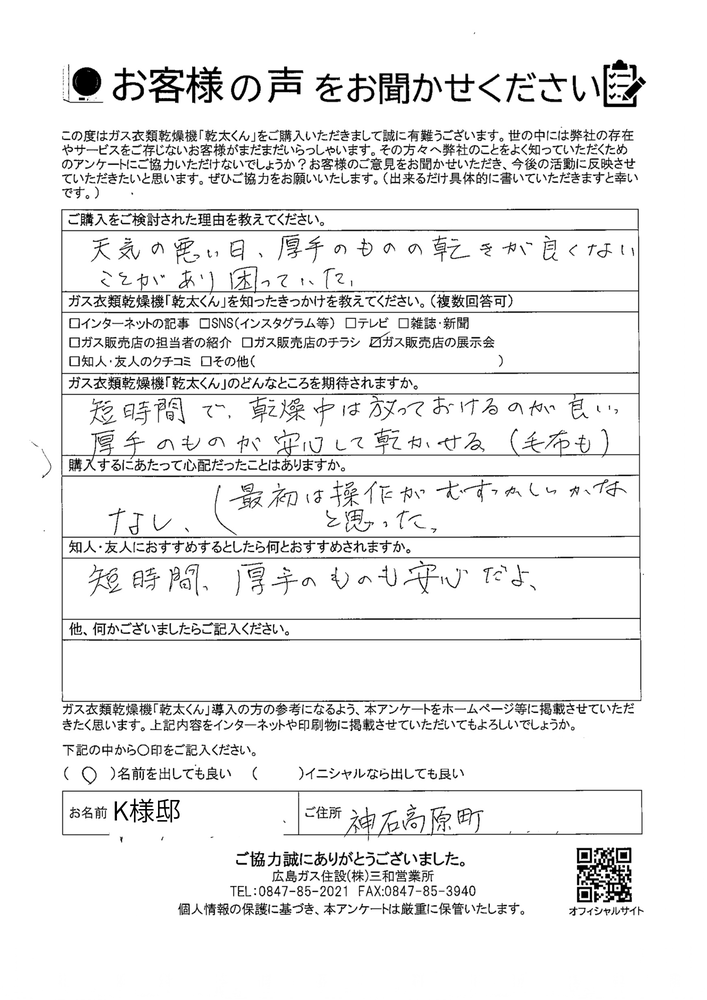 お客様の声をお聞かせください
この度はガス衣類乾燥機「乾太くん」をご購入いただきまして誠に有難うございます。世の中には弊社の存在
やサービスをご存じないお客様がまだまだいらっしゃいます。その方々へ弊社のことをよく知っていただくため
のアンケートにご協力いただけないでしょうか？お客様のご意見をお聞かせいただき、今後の活動に反映させ
ていただきたいと思います。ぜひご協力をお願いいたします。（出来るだけ具体的に書いていただきますと幸い
です。）
ご購入をご検討された理由を教えてください。
天気の悪い日、厚手のものの乾きが良くない
ことがあり困っていた。
ガス衣類乾燥機「乾太くん」を知ったきっかけを教えてください。（複数回答可）
□インターネットの記事 □SNS(インスタグラム等) □テレビ □雑誌・新聞
□ガス販売店の担当者の紹介 □ガス販売店のチラシ ☑ガス販売店の展示会
□知人・友人のクチコミ □その他( )
ガス衣類乾燥機「乾太くん」のどんなところを期待されますか。
短時間で、乾燥中は放っておけるのが良い。
厚手のものが安心して乾かせる（毛布も）
購入するにあたって心配だったことはありますか。
なし、（最初は操作がむずかしいかな
と思った。
知人・友人におすすめするとしたら何とおすすめされますか。
短時間、厚手のものも安心だよ、
他、何かございましたらご記入ください。
ガス衣類乾燥機「乾太くん」導入の方の参考になるよう、本アンケートをホームページ等に掲載させていただ
きたく思います。上記内容をインターネットや印刷物に掲載させていただいてもよろしいでしょうか。
下記の中から〇印をご記入ください。
( 〇 )名前を出しても良い ( )イニシャルなら出しても良い
お名前 K様邸 ご住所 神石高原町
ご協力誠にありがとうございました。
広島ガス住設(株)三和営業所
TEL:0847-85-2021 FAX:0847-85-3940
個人情報の保護に基づき、本アンケートは厳重に保管いたします。
オフィシャルサイト